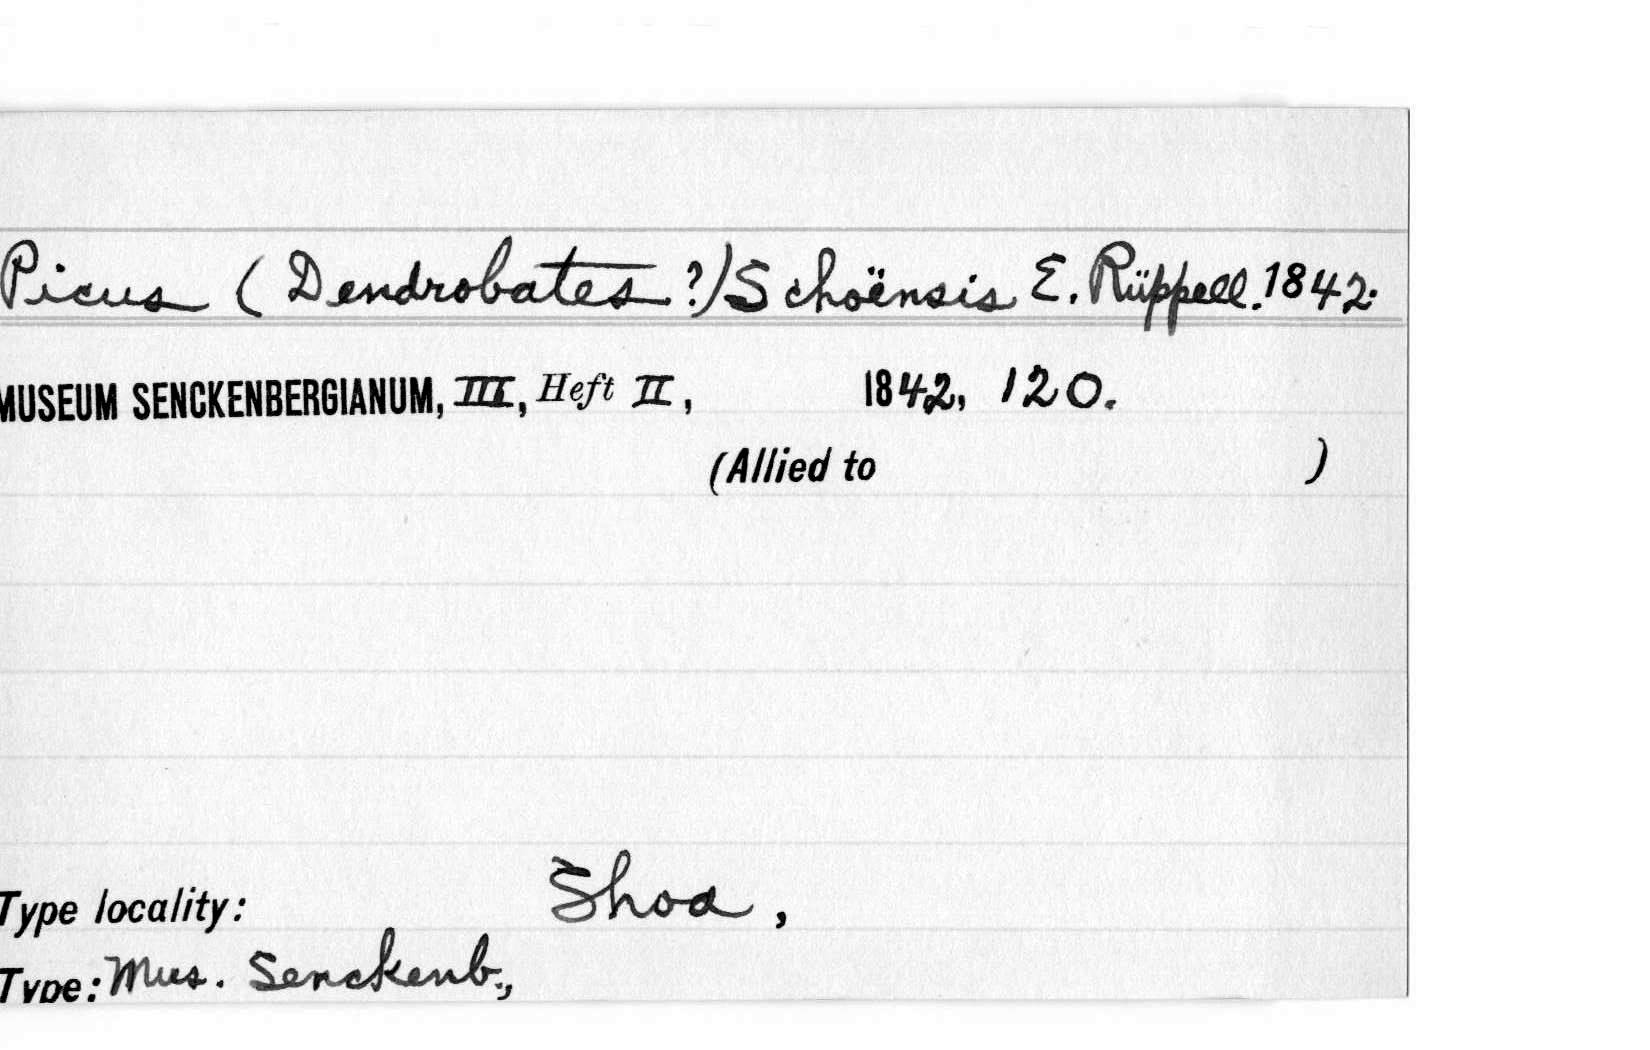 Picus (Dendrobates?) Schoënsis E. Rüppell. 1842.
MUSEUM SENCKENBERGIANUM, III, Heft II, 1842, 120.
(Allied to )
Type locality: Shoa,
Type: Mus. Senckenb.,